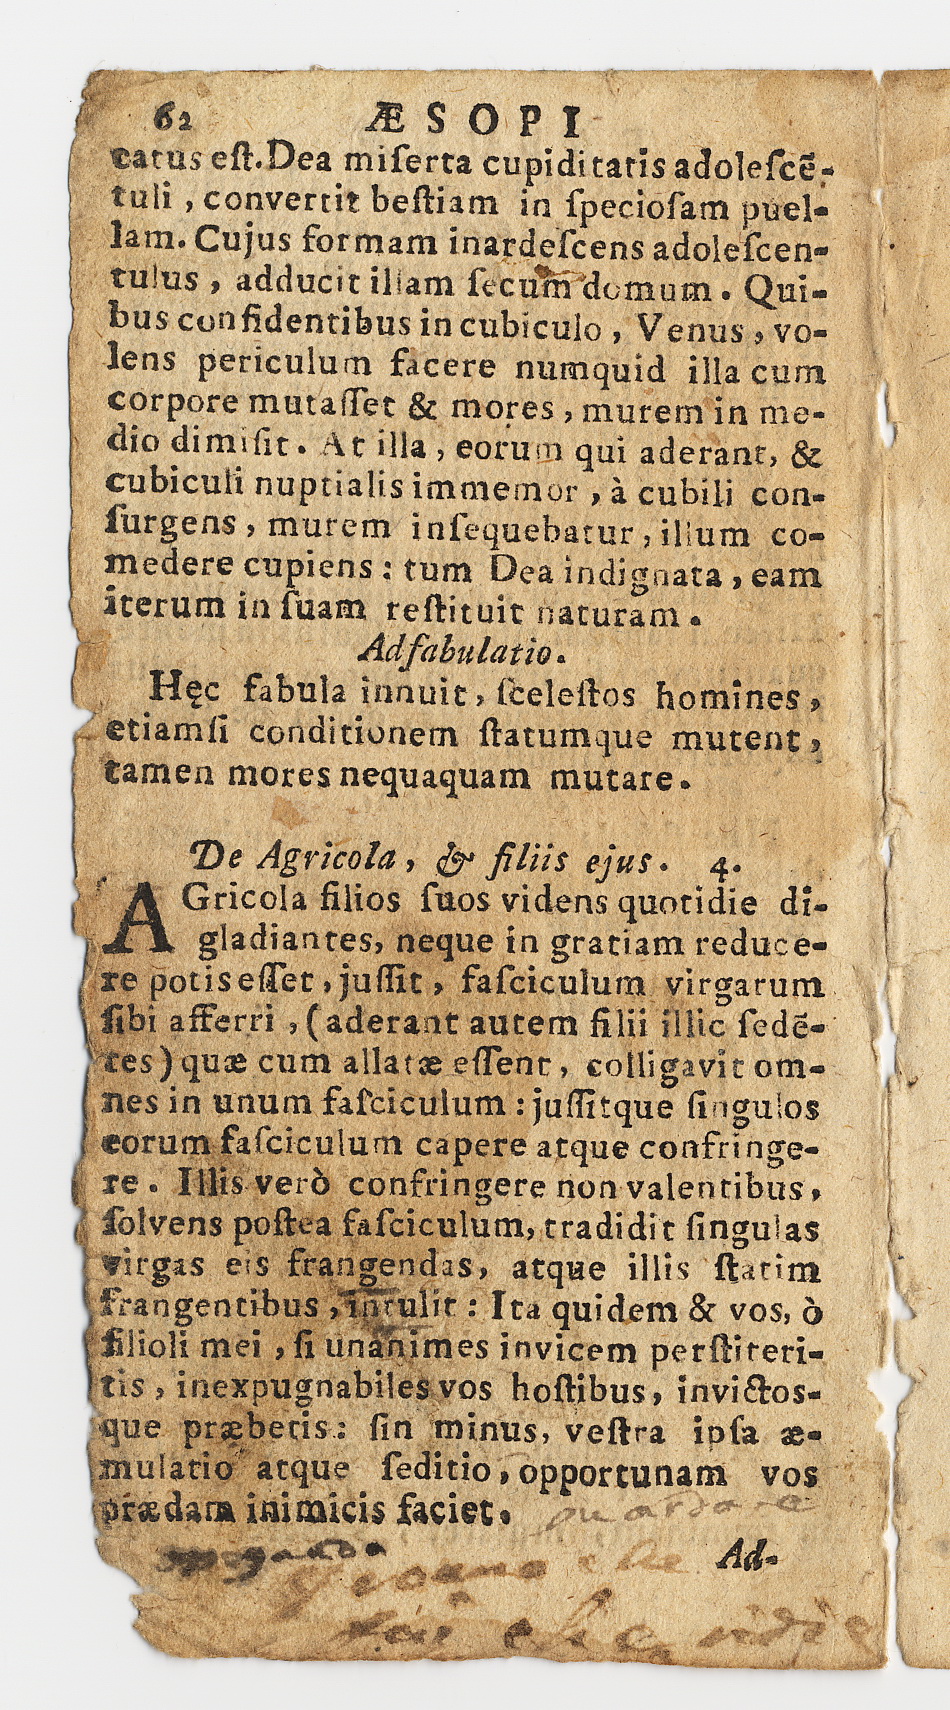 62 ÆSOPI
catus eſt. Dea miſerta cupiditatis adoleſcē-
tuli, convertit beſtiam in ſpecioſam puel-
lam. Cujus formam inardeſcens adoleſcen-
tulus, adducit illam ſecum domum. Qui-
bus confidentibus in cubiculo, Venus, vo-
lens periculum facere numquid illa cum
corpore mutaſſet & mores, murem in me-
dio dimiſit. At illa, eorum qui aderant, &
cubiculi nuptialis immemor, à cubili con-
ſurgens, murem inſequebatur, illum co-
medere cupiens: tum Dea indignata, eam
iterum in ſuam reſtituit naturam.
Adfabulatio.
Hęc fabula innuit, ſceleſtos homines,
etiamſi conditionem ſtatumque mutent,
tamen mores nequaquam mutare.
De Agricola, & filiis ejus. 4.
AGricola filios ſuos videns quotidie di-
gladiantes, neque in gratiam reduce-
re potis eſſet, juſſit, faſciculum virgarum
ſibi afferri, (aderant autem filii illic ſedē-
tes) quæ cum allatæ eſſent, colligavit om-
nes in unum faſciculum: juſſitque ſingulos
eorum faſciculum capere atque confringe-
re. Illis verò confringere non valentibus,
ſolvens poſtea faſciculum, tradidit ſingulas
virgas eis frangendas, atque illis ſtatim
frangentibus, intulit: Ita quidem & vos, ò
filioli mei, ſi unanimes invicem perſtiteri-
tis, inexpugnabiles vos hoſtibus, invictos-
que præbetis: ſin minus, veſtra ipſa æ-
mulatio atque ſeditio, opportunam vos
prædam inimicis faciet.
Ad-